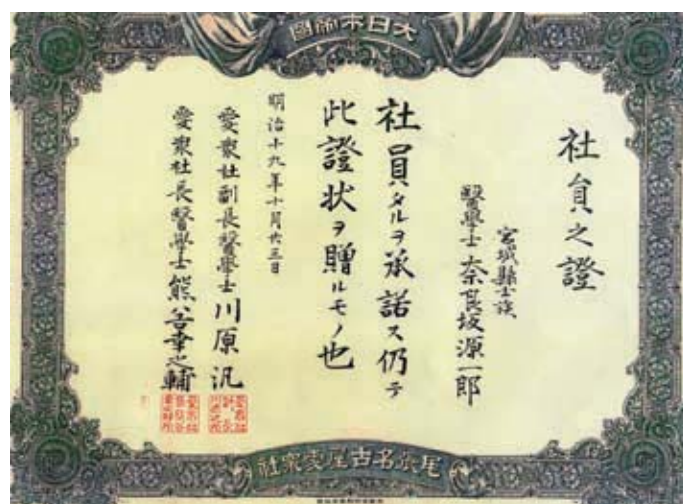 大日本帝國
社員之證
宮城縣士族
醫學士奈良坂源一郎
社員タルヲ承諾ス仍テ
此證状ヲ贈ルモノ也
明治十九年十月廿三日
愛衆社副長醫學士川原汎
愛衆社長醫學士熊谷幸之輔
尾張名古屋愛衆社